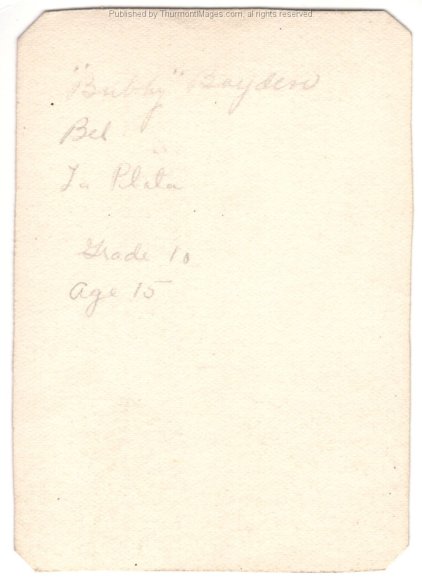 Published by ThurmontImages.com, all rights reserved.
"Bubby"
Bel
La Plata
Grade 10
Age 15